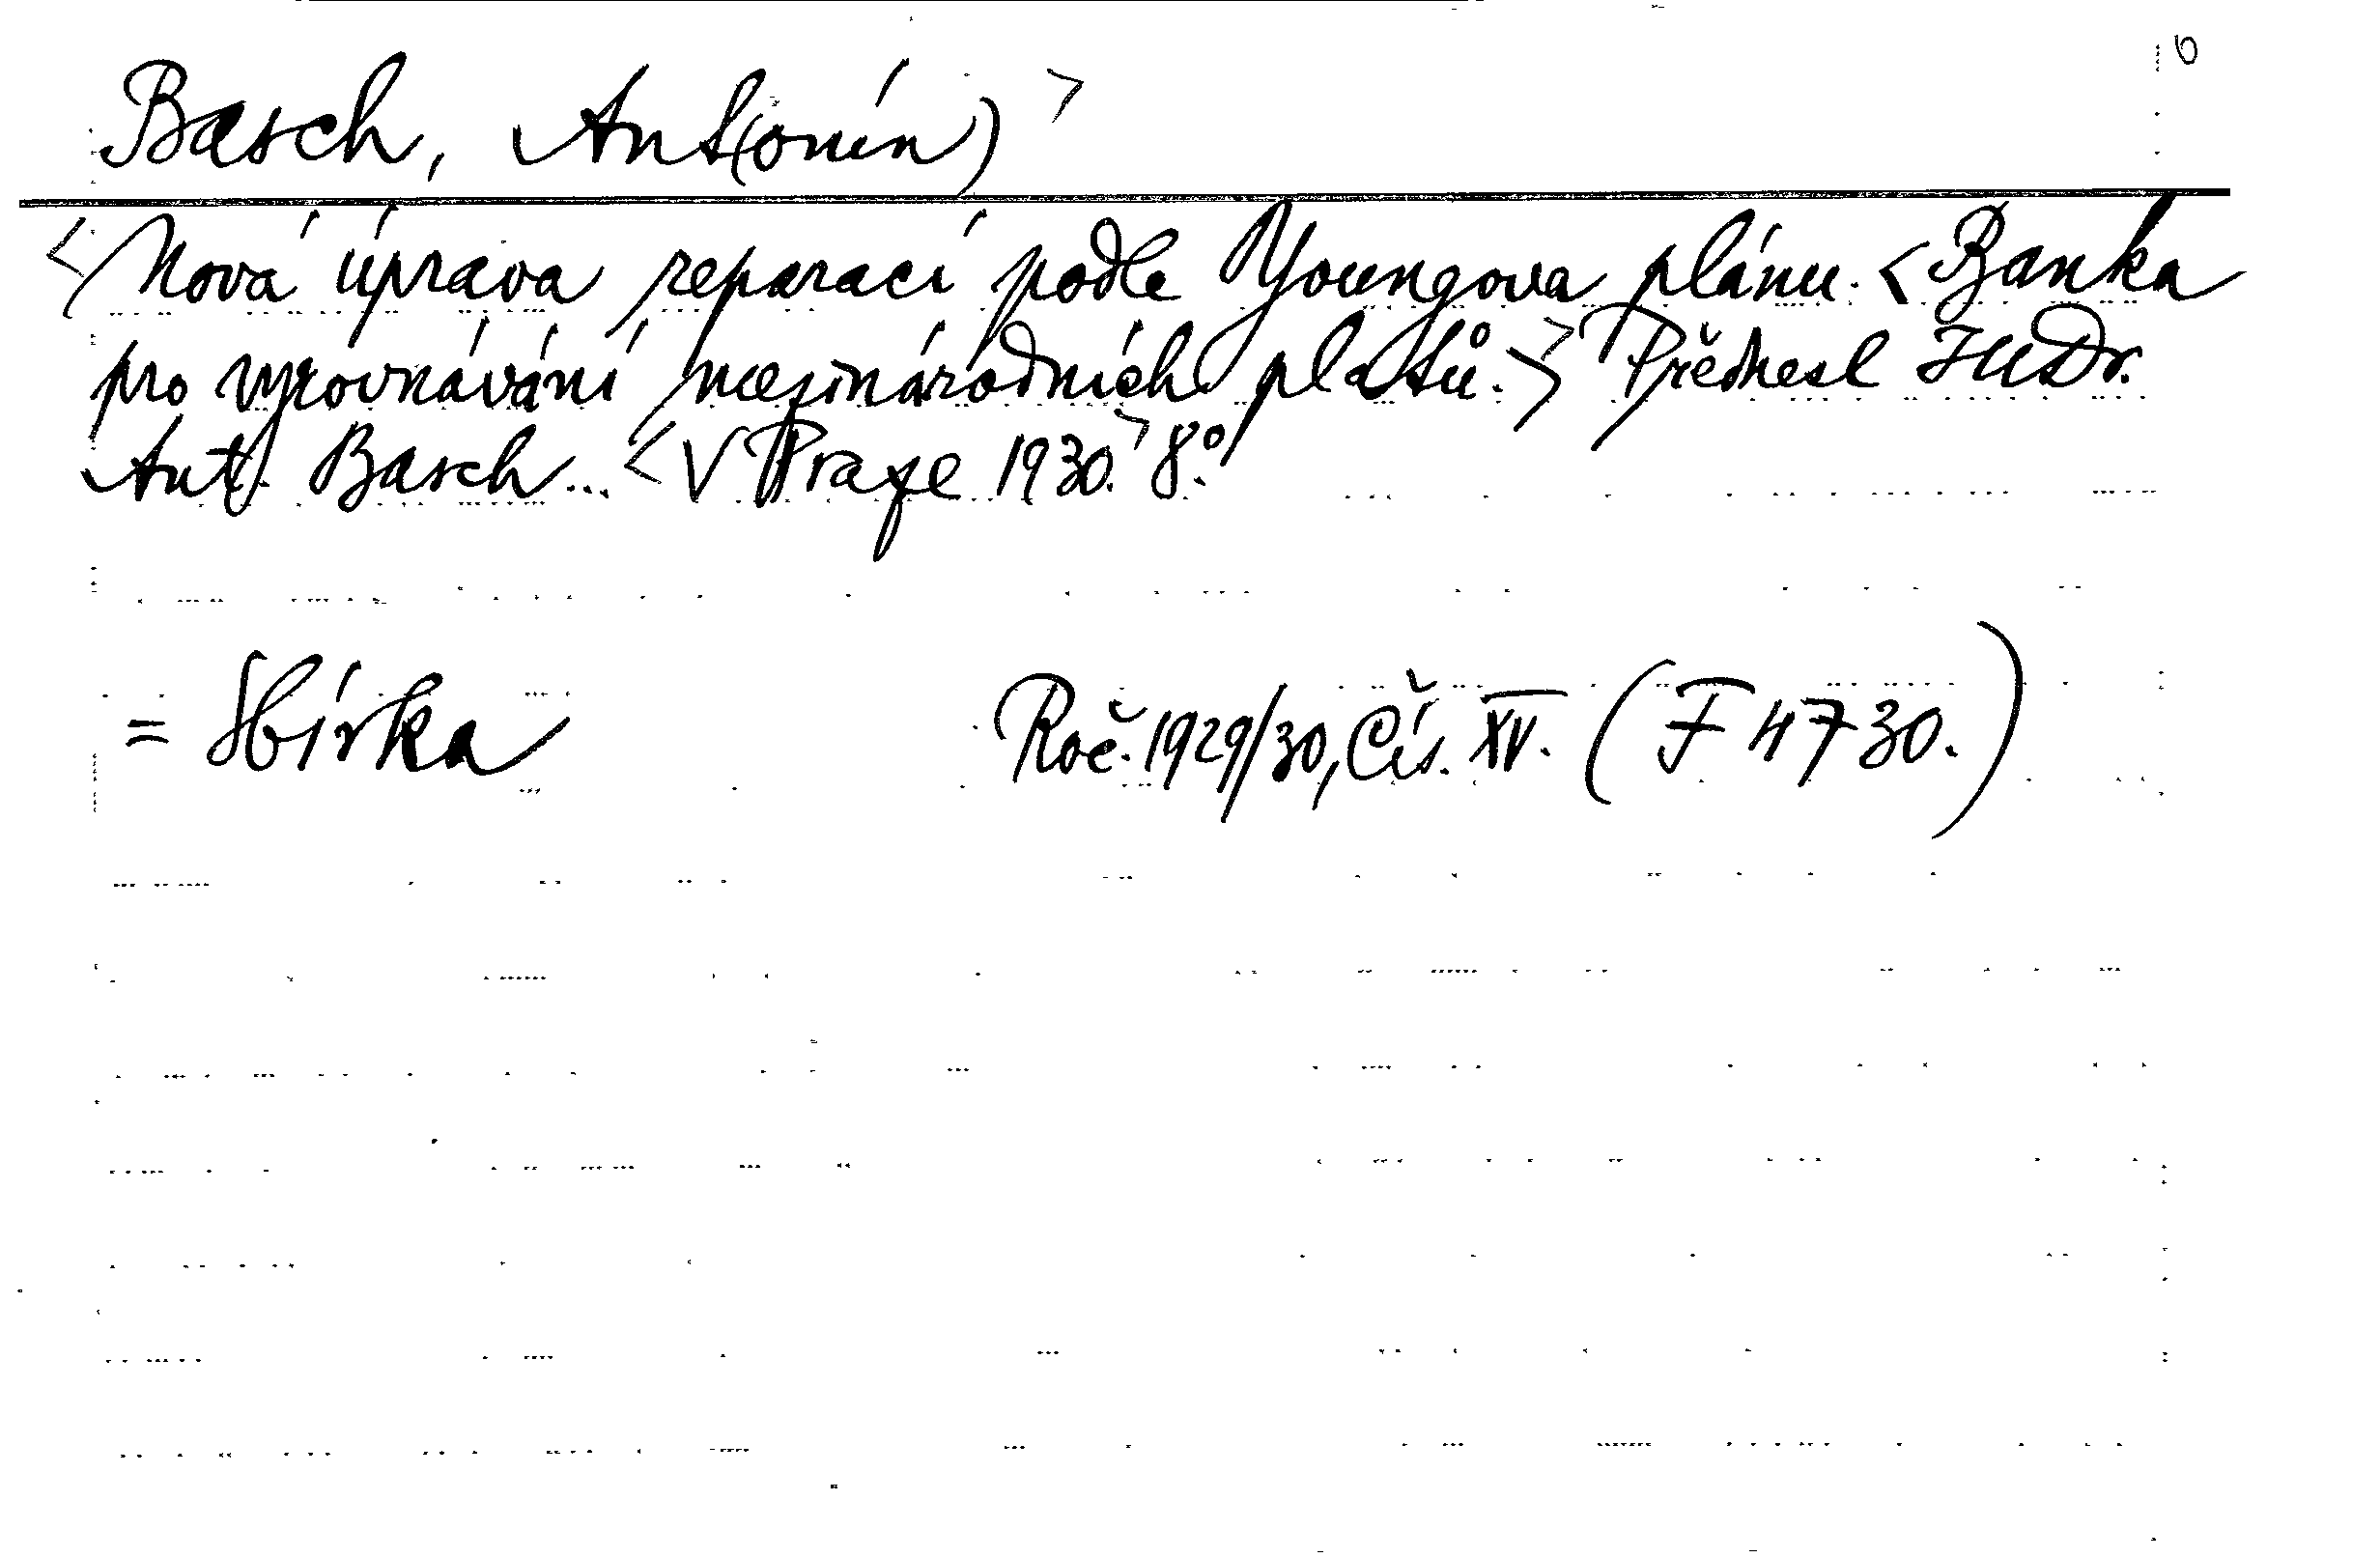 6
Basch, Ant(onín) >
< Nová úprava reparací podle Youngova plánu. < Banka
pro vyrovnávání mezinárodních platů. >> Přednesl JUDr.
Ant. Basch... < V Praze 1930. > 8°.
= Sbírka Roč. 1929/30, Čís. XV. (F 4730.)